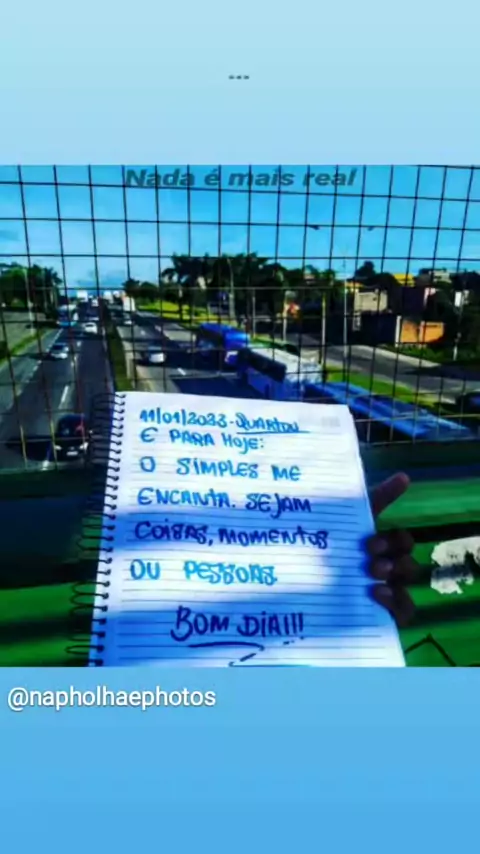 Nada é mais real
11/01/2023-QUARTOU
E PARA HOJE:
O SIMPLES ME
ENCANTA. SEJAM
COISAS, MOMENTOS
OU PESSOAS.
BOM DIA!!!
@napholhaephotos